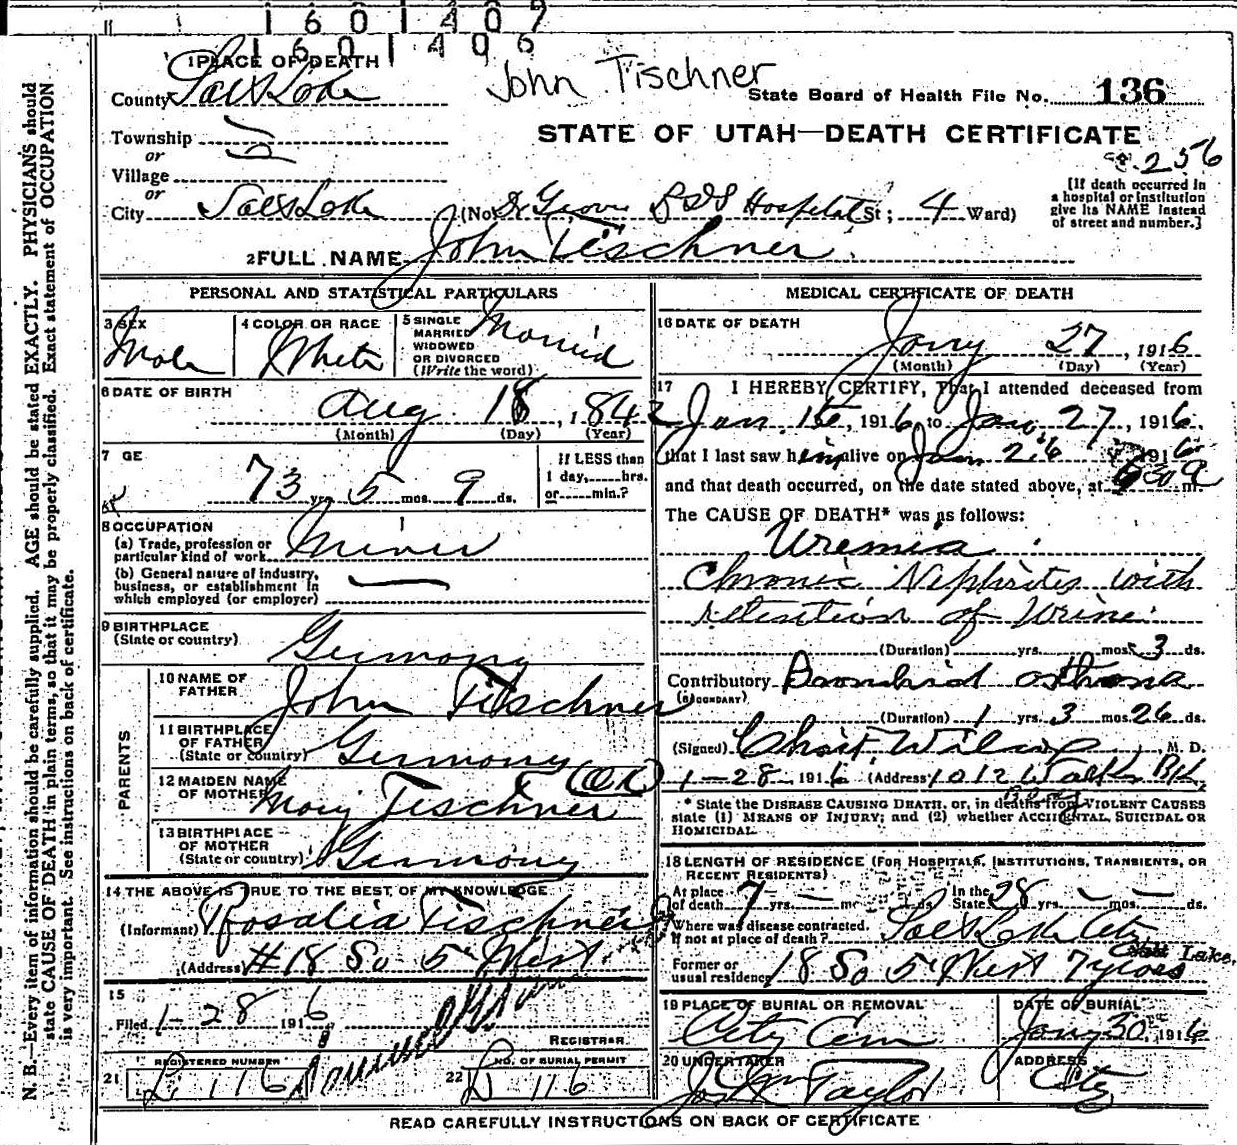 1601407
1601406
John Tischner
1 PLACE OF DEATH
County Salt Lake
State Board of Health File No. 136
Township
or
Village
or
City Salt Lake
STATE OF UTAH—DEATH CERTIFICATE
256
[If death occurred in
a hospital or institution
give its NAME instead
of street and number.]
(No. Dr Groves LDS Hospital St; 4 Ward)
2 FULL NAME John Tischner
PERSONAL AND STATISTICAL PARTICULARS
3 SEX
Male
4 COLOR OR RACE
White
5 SINGLE
MARRIED
WIDOWED
OR DIVORCED
(Write the word)
Married
6 DATE OF BIRTH
Aug 18, 1842
(Month) (Day) (Year)
7 GE
73 yrs 5 mos. 9 ds.
If LESS than
1 day,.....hrs.
or.....min.?
8 OCCUPATION
(a) Trade, profession or
particular kind of work Miner
(b) General nature of industry,
business, or establishment in
which employed (or employer)
9 BIRTHPLACE
(State or country)
Germany
PARENTS
10 NAME OF
FATHER
John Tischner
11 BIRTHPLACE
OF FATHER
(State or country)
Germany
12 MAIDEN NAME
OF MOTHER
(OK)
Mary Tischner
13 BIRTHPLACE
OF MOTHER
(State or country)
Germany
14 THE ABOVE IS TRUE TO THE BEST OF MY KNOWLEDGE
(Informant) Rosalia Tischner
(Address) #18 So 5" West
15
Filed 1-28 1916
REGISTRAR
REGISTERED NUMBER
21 116
NO. OF BURIAL PERMIT
22 116
MEDICAL CERTIFICATE OF DEATH
16 DATE OF DEATH
Jany 27, 1916
(Month) (Day) (Year)
17 I HEREBY CERTIFY, That I attended deceased from
Jan. 1st, 1916, to Jan. 27, 1916.
that I last saw him alive on Jan 26 1916
and that death occurred, on the date stated above, at 630 a m.
The CAUSE OF DEATH* was as follows:
Uremia
Chronic Nephritis with
retention of Urine.
(Duration) yrs. mos. 3 ds.
Contributory Bronchial asthma
(SECONDARY)
(Duration) 1 yrs. 3 mos. 26 ds.
(Signed) Chas F. Wilcox, M. D.
1-28 1916 (Address) 1012 Walk Bk
Bldg
* State the DISEASE CAUSING DEATH, or, in deaths from VIOLENT CAUSES
state (1) MEANS OF INJURY; and (2) whether ACCIDENTAL, SUICIDAL OR
HOMICIDAL.
18 LENGTH OF RESIDENCE (FOR HOSPITALS, INSTITUTIONS, TRANSIENTS, OR
RECENT RESIDENTS)
At place
of death 7 yrs. — mos. ds.
In the
State 28 yrs. — mos. — ds.
Where was disease contracted.
If not at place of death? Salt Lake City
Former or
usual residence 18 So 5" West 7 years
Salt Lake.
19 PLACE OF BURIAL OR REMOVAL
City Cem
DATE OF BURIAL
Jany 30th, 1916
20 UNDERTAKER
Jos Wm Taylor
ADDRESS
City
READ CAREFULLY INSTRUCTIONS ON BACK OF CERTIFICATE
N. B.—Every item of information should be carefully supplied. AGE should be stated EXACTLY. PHYSICIANS should
state CAUSE OF DEATH in plain terms, so that it may be properly classified. Exact statement of OCCUPATION
is very important. See instructions on back of certificate.